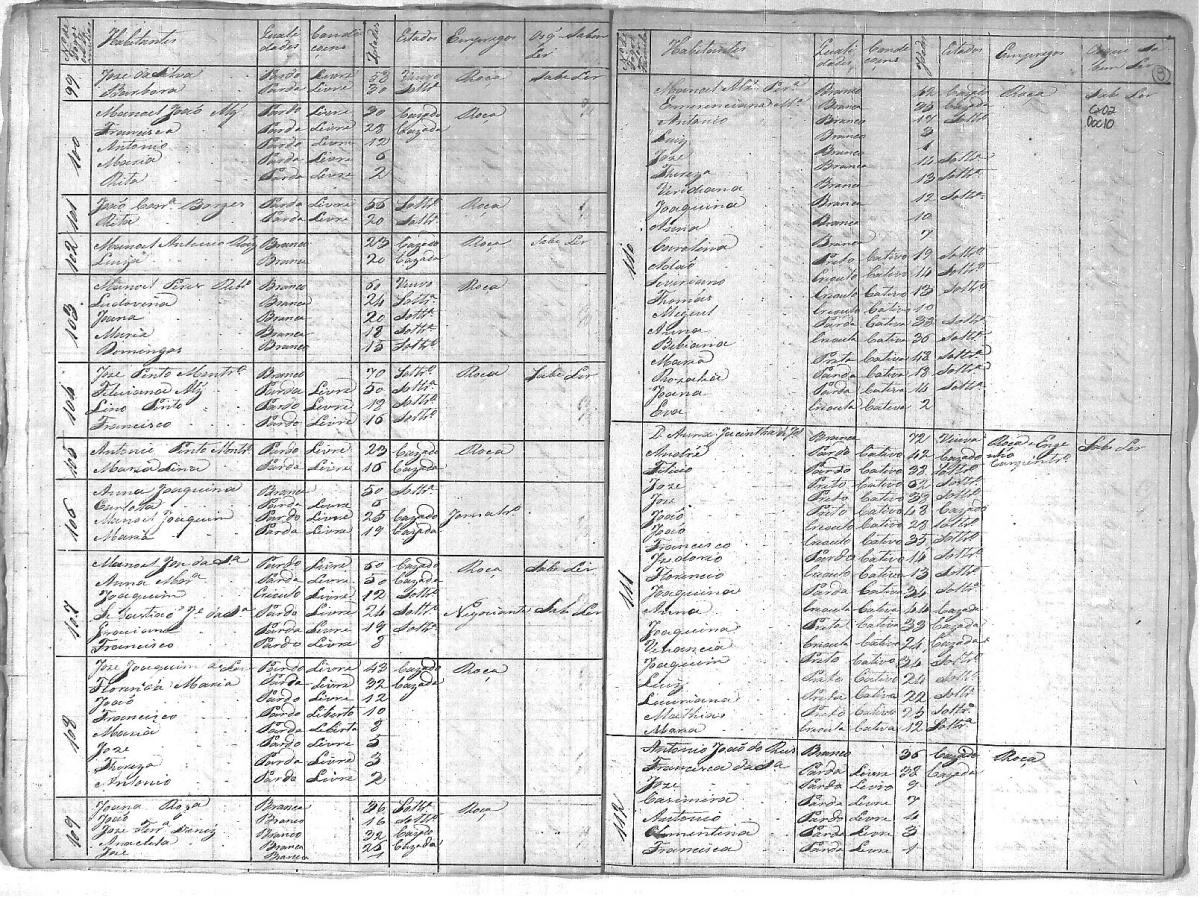 Habitantes Quali dades Condi coens Idades Estados Empregos Saber Ler
99 Joze da Silva Pardo Livre 58 Roça Sabe Ler
Barbara Parda Livre 30 Soltrª
100 Manoel João Alz Pardo Livre 30 Cazado Roça
Francisca Parda Livre 23 Cazada
Antonio Pardo Livre 12
Maria Parda Livre 6
Rita Parda Livre 2
101 João Borges Pardo Livre 56 Soltrº Roça
Rita Parda Livre 20 Soltrª
102 Manoel Antonio Roiz Branco 23 Cazado Roça Sabe Ler
Luiza Branca 20 Cazada
103 Manoel Branco 60 Viuvo Roça
Ludovina Branca 24 Soltrª
Joana Branca 20 Soltrª
Maria Branca 18 Soltrª
Domingos Branco 15 Soltrº
104 Joze Pinto Montrº Branco 70 Soltrº Roça Sabe Ler
Feliciana Alz Parda Livre 50 Soltrª
Lino Pinto Pardo Livre 18 Soltrº
Francisco Pardo Livre 16 Soltrº
105 Antonio Pinto Montrº Pardo Livre 23 Cazado Roça
Maria Lina Parda Livre 16 Cazada
106 Anna Joaquina Branca 50 Soltrª
Carlota Parda Livre 6
Manoel Joaquim Pardo Livre 25 Cazado Jornalrº
Maria Parda Livre 19 Cazada
107 Manoel da Sª Pardo Livre 60 Cazado Roça Sabe Ler
Anna Parda Livre 50 Cazada
Joaquim Creoulo Livre 12 Soltrº
da Sª Pardo Livre 24 Soltrº Negociante Sabe Ler
Graciana Parda Livre 19 Soltrª
Francisco Pardo Livre 8
108 Joze Joaquim Pardo Livre 43 Cazado Roça
Florencia Maria Parda Livre 32 Cazada
João Pardo Livre 12
Francisco Pardo Liberto 10
Maria Parda Liberta 8
Joze Pardo Livre 5
Thereza Parda Livre 3
Antonio Pardo Livre 2
109 Joana Roza Branca 36 Soltrª Roça
João Branco 16 Soltrº
Joze Ferrª Diniz Branco 32 Cazado
Anacleta Branca 25 Cazada
Joze Branco 1
Habitantes Quali dades Condi coens Idade Estados Empregos
110 Manoel Alz Branco Cazado Roça Sabe Ler
Emmerenciana Mª Branca 36 Cazada
G02
Doc10
Antonio Branco 17 Soltrº
Luiz Branco
Joze Branco 1
Thereza Branca 14 Soltrª
Viridiana Branca 13 Soltrª
Joaquina Branca 12 Soltrª
Anna Branca 10
Carolina Branca 7
Adão Preto Cativo 19 Soltrº
Severiano Creoulo Cativo 14 Soltrº
Thomás Creoulo Cativo 13 Soltrº
Miguel Creoulo Cativo 10
Anna Parda Cativa 38 Soltrª
Bibiana Creoula Cativa 36 Soltrª
Maria Preta Cativa 48 Soltrª
Rozalia Parda Cativa 18 Soltrª
Joana Parda Cativa 14 Soltrª
Eva Creoula Cativa 2
111 D. Anna Jacintha Branca 72 Viuva Roça e Enge nho Sabe Ler
André Pardo Cativo 42 Cazado Carpintrº
Felicio Pardo Cativo 38 Soltrº
Joze Preto Cativo 62 Soltrº
Joze Preto Cativo 39 Soltrº
João Preto Cativo 48 Cazado
João Creoulo Cativo 28 Soltrº
Francisco Creoulo Cativo 35 Soltrº
Pardo Cativo 16 Soltrº
Florencio Creoulo Cativo 13 Soltrº
Joaquina Parda Cativa 34 Soltrª
Anna Creoula Cativa 44 Cazada
Joaquina Preta Cativa 39 Cazada
Venancia Creoula Cativa 24 Cazada
Joaquim Preto Cativo 34 Soltrº
Luiz Preto Cativo 24 Soltrº
Luciana Preta Cativa 22 Soltrª
Mathias Preto Cativo 25 Soltrº
Maria Creoula Cativa 12 Soltrª
112 Antonio João do Reis Branco 36 Cazado Roça
Francisca da Sª Parda Livre 28 Cazada
Joze Pardo Livre 9
Cazimira Parda Livre 7
Antonio Pardo Livre 4
Clementina Parda Livre 3
Francisca Parda Livre 1